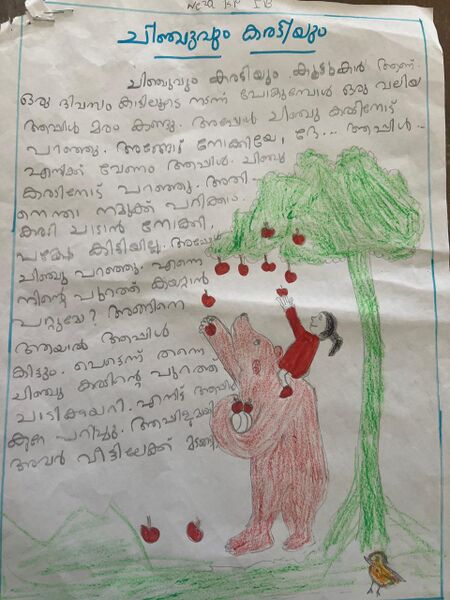 Neza KP I B
ചിഞ്ചുവും കരടിയും
ചിഞ്ചുവും കരടിയും കൂട്ടുകാർ ആണ്.
ഒരു ദിവസം കാട്ടിലൂടെ നടന്ന് പോകുമ്പോൾ ഒരു വലിയ
ആപ്പിൾ മരം കണ്ടു. അപ്പോൾ ചിഞ്ചു കരടിനോട്
പറഞ്ഞു. അങ്ങോട്ട് നോക്കിയേ, ദേ... ആപ്പിൾ..
എനിക്ക് വേണം ആപ്പിൾ. ചിഞ്ചു
കരടിനോട് പറഞ്ഞു. അതി-
നെന്താ നമുക്ക് പറിക്കാം.
കരടി ചാടാൻ നോക്കി,
പക്ഷേ കിട്ടിയില്ല. അപ്പോ
ചിഞ്ചു പറഞ്ഞു. എന്നെ
നിന്റെ പുറത്ത് കയറ്റാൻ
പറ്റുമോ? അങ്ങിനെ
ആയാൽ ആപ്പിൾ
കിട്ടും. പെട്ടെന്ന് തന്നെ
ചിഞ്ചു കരടിന്റെ പുറത്ത്
ചാടിക്കയറി. എന്നിട്ട് ആപ്പിൾ
പറിച്ചു. ആപ്പിളുമായി
അവർ വീട്ടിലേക്ക് മടങ്ങി